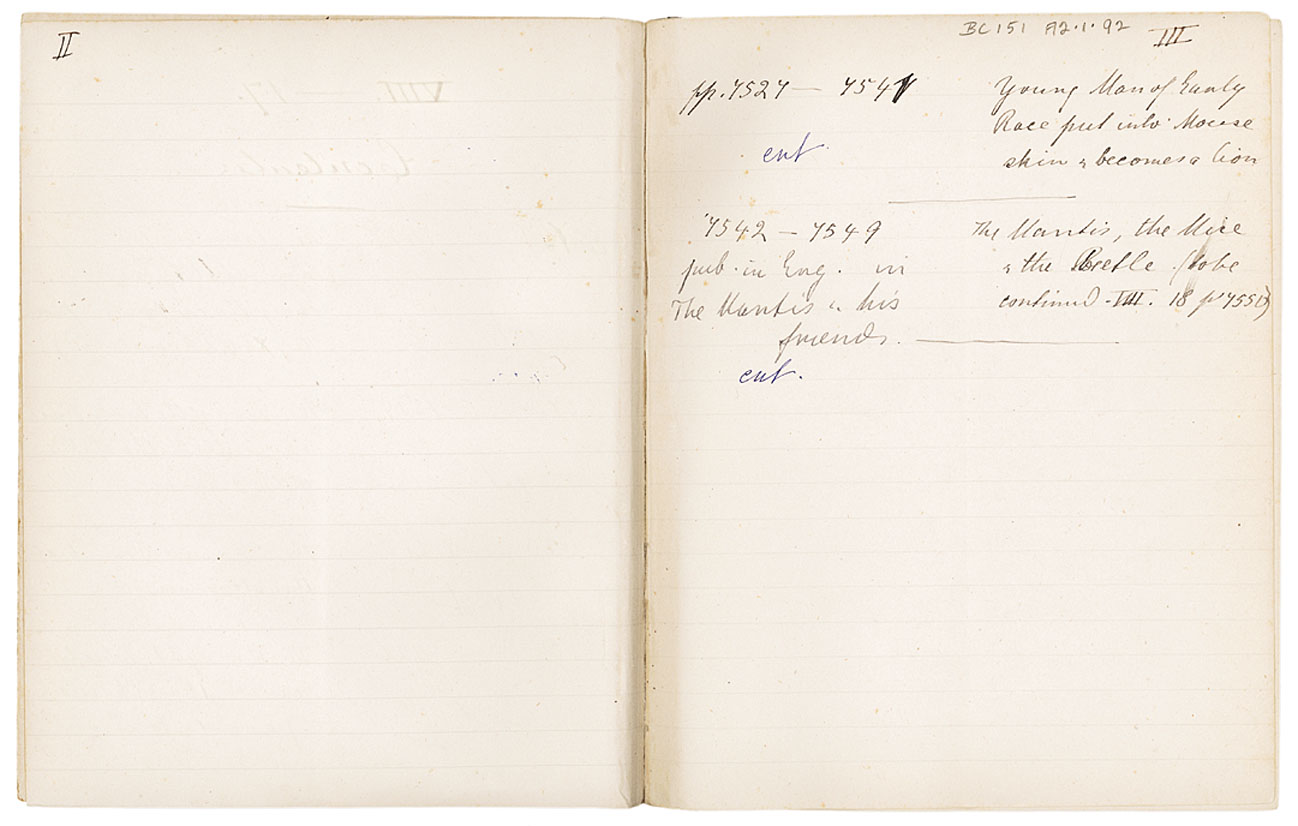 II
BC151 A2.1.92
III
pp. 7527 — 7541
cut
Young Man of Early
Race put into Mouse
skin & becomes a lion
7542 — 7549
pub. in Eng. in
The Mantis & his
friends.
cut.
The Mantis, the Mice
& the Beetle (to be
continued - VIII. 18 p 7550)
VIII. 17.